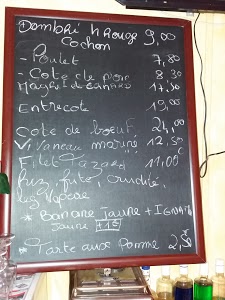 Dombré H Rouge 9,00
Cochon
- Poulet 7,80
- Cote de porc 8,30
Magret de canard 17,50
Entrecote 19,00
Cote de boeuf 24,00
Vivaneau mariné 12,50
Filet Tazard 11,00
Riz, frite, crudité,
leg vapeur
* Banane Jaune + IGNAM
Jaune +1€
* Tarte aux Pomme 2,5